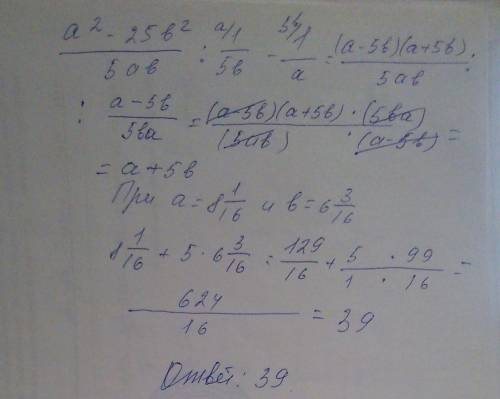 (a² - 25b²)/(5ab) : (ᵃ⁄1/(5b) - ⁵ᵇ⁄1/a) = ((a-5b)(a+5b))/(5ab) :
: (a-5b)/(5ba) = ((a-5b)(a+5b)·(5ba))/((5ab)·(a-5b)) =
= a+5b
При a = 8 1/16 и b = 6 3/16
8 1/16 + 5·6 3/16 = 129/16 + (5·99)/(1·16) =
624/16 = 39
Ответ: 39